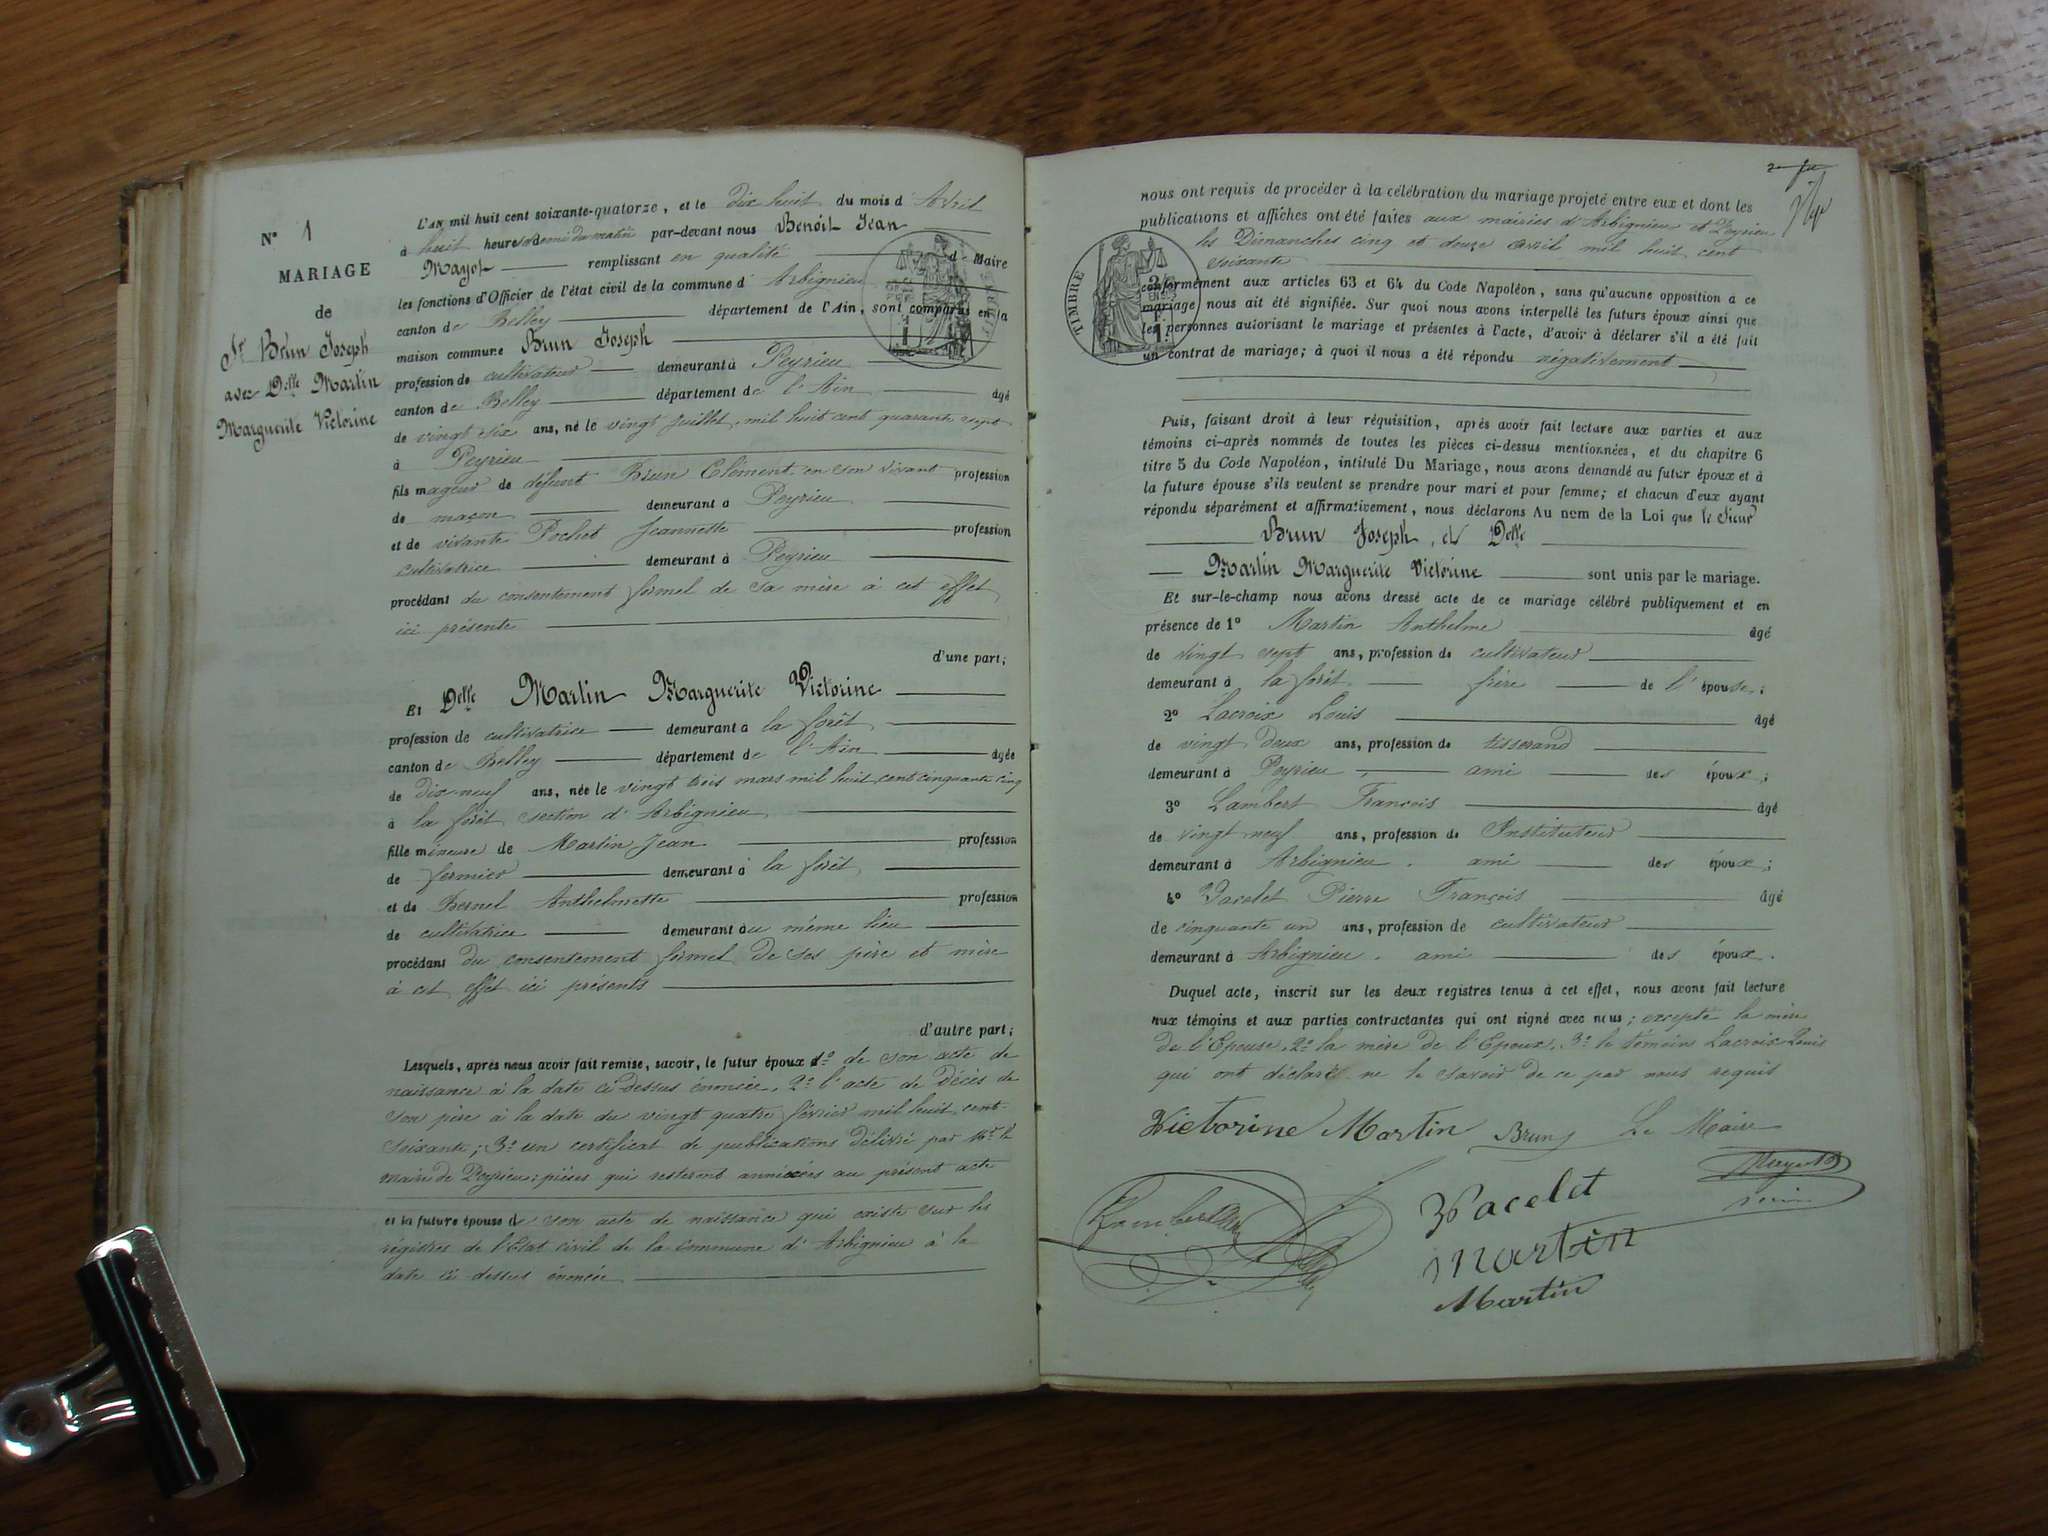 N° 1
MARIAGE
de
Sr Brun Joseph
avec Delle Martin
Marguerite Victorine
L'an mil huit cent soixante-quatorze, et le dix huit du mois d'Avril
à huit heures et demi du matin par-devant nous Benoît Jean
Mayot remplissant en qualité de Maire
les fonctions d'Officier de l'état civil de la commune d'Arbignieu
canton de Belley département de l'Ain, sont comparus en la
maison commune Brun Joseph
profession de cultivateur demeurant à Peyrieu
canton de Belley département de l'Ain âgé
de vingt six ans, né le vingt Juillet, mil huit cent quarante sept
à Peyrieu
fils mageur de défunt Brun Clément en son vivant profession
de maçon demeurant à Peyrieu
et de vivante Pochet Jeannette profession
cultivatrice demeurant à Peyrieu
procédant du consentement formel de sa mère à cet effet
ici présente
d'une part;
Et Delle Martin Marguerite Victorine
profession de cultivatrice demeurant à la forêt
canton de Belley département de l'Ain âgée
de dix-neuf ans, née le vingt trois mars mil huit cent cinquante cinq
à la forêt section d'Arbignieu
fille mineure de Martin Jean profession
de fermier demeurant à la forêt
et de Bernel Anthelmette profession
de cultivatrice demeurant au même lieu
procédant du consentement formel de ses père et mère
à cet effet ici présents
d'autre part;
Lesquels, après nous avoir fait remise, savoir, le futur époux 1° de son acte de
naissance à la date ci dessus énoncée, 2° l'acte de décès de
son père à la date du vingt quatre février mil huit cent
soixante; 3° un certificat de publications délivré par Mr le
maire de Peyrieu; pièces qui resteront annexées au présent acte
et la future épouse de son acte de naissance qui existe sur les
régistres de l'Etat civil de la commune d'Arbignieu à la
date ci dessus énoncée
nous ont requis de procéder à la célébration du mariage projeté entre eux et dont les
publications et affiches ont été faites aux mairies d'Arbignieu et Peyrieu
les Dimanches cinq et douze avril mil huit cent
soixante
TIMBRE
conformément aux articles 63 et 64 du Code Napoléon, sans qu'aucune opposition à ce
mariage nous ait été signifiée. Sur quoi nous avons interpellé les futurs époux ainsi que
les personnes autorisant le mariage et présentes à l'acte, d'avoir à déclarer s'il a été fait
un contrat de mariage; à quoi il nous a été répondu négativement
Puis, faisant droit à leur réquisition, après avoir fait lecture aux parties et aux
témoins ci-après nommés de toutes les pièces ci-dessus mentionnées, et du chapitre 6
titre 5 du Code Napoléon, intitulé Du Mariage, nous avons demandé au futur époux et à
la future épouse s'ils veulent se prendre pour mari et pour femme; et chacun d'eux ayant
répondu séparément et affirmativement, nous déclarons Au nom de la Loi que le Sieur
Brun Joseph, et Delle
Martin Marguerite Victorine sont unis par le mariage.
Et sur-le-champ nous avons dressé acte de ce mariage célébré publiquement et en
présence de 1° Martin Anthelme âgé
de vingt sept ans, profession de cultivateur
demeurant à la forêt frère de l'épouse;
2° Lacroix Louis âgé
de vingt deux ans, profession de tisserand
demeurant à Peyrieu, ami des époux;
3° Lambert François âgé
de vingt neuf ans, profession de Instituteur
demeurant à Arbignieu. ami des époux;
4° Vacelet Pierre François âgé
de cinquante un ans, profession de cultivateur
demeurant à Arbignieu. ami des époux.
Duquel acte, inscrit sur les deux registres tenus à cet effet, nous avons fait lecture
aux témoins et aux parties contractantes qui ont signé avec nous; excepté la mère
de l'Epouse, 2° la mère de l'Epoux, 3° le témoin Lacroix Louis
qui ont déclaré ne le savoir de ce par nous requis
Victorine Martin Brun Le Maire
Lambert Vacelet Mayot
Martin
Martin